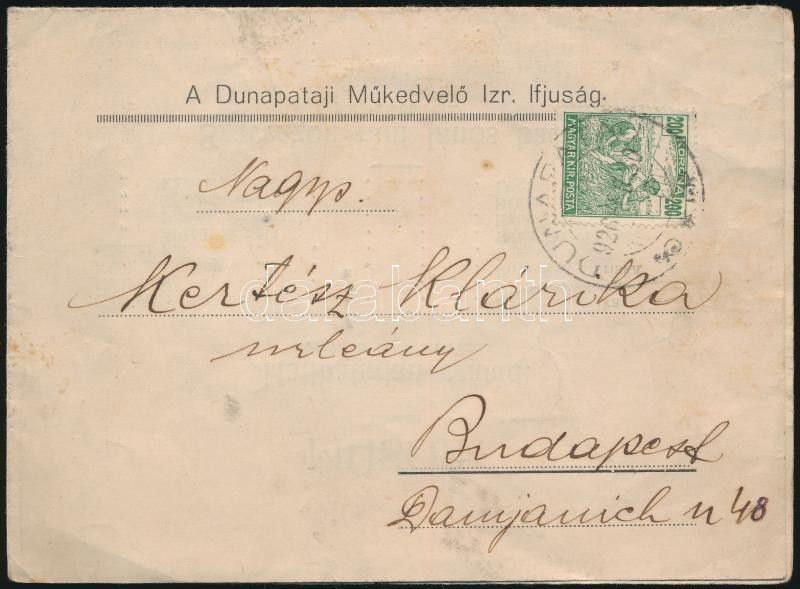 A Dunapataji Műkedvelő Izr. Ifjuság.
200 KORONA 200
MAGYAR KIR. POSTA
DUNAPA
926
Nagys.
Kertész Klárika
darabanth
urleány
Budapest
Damjanich u 48